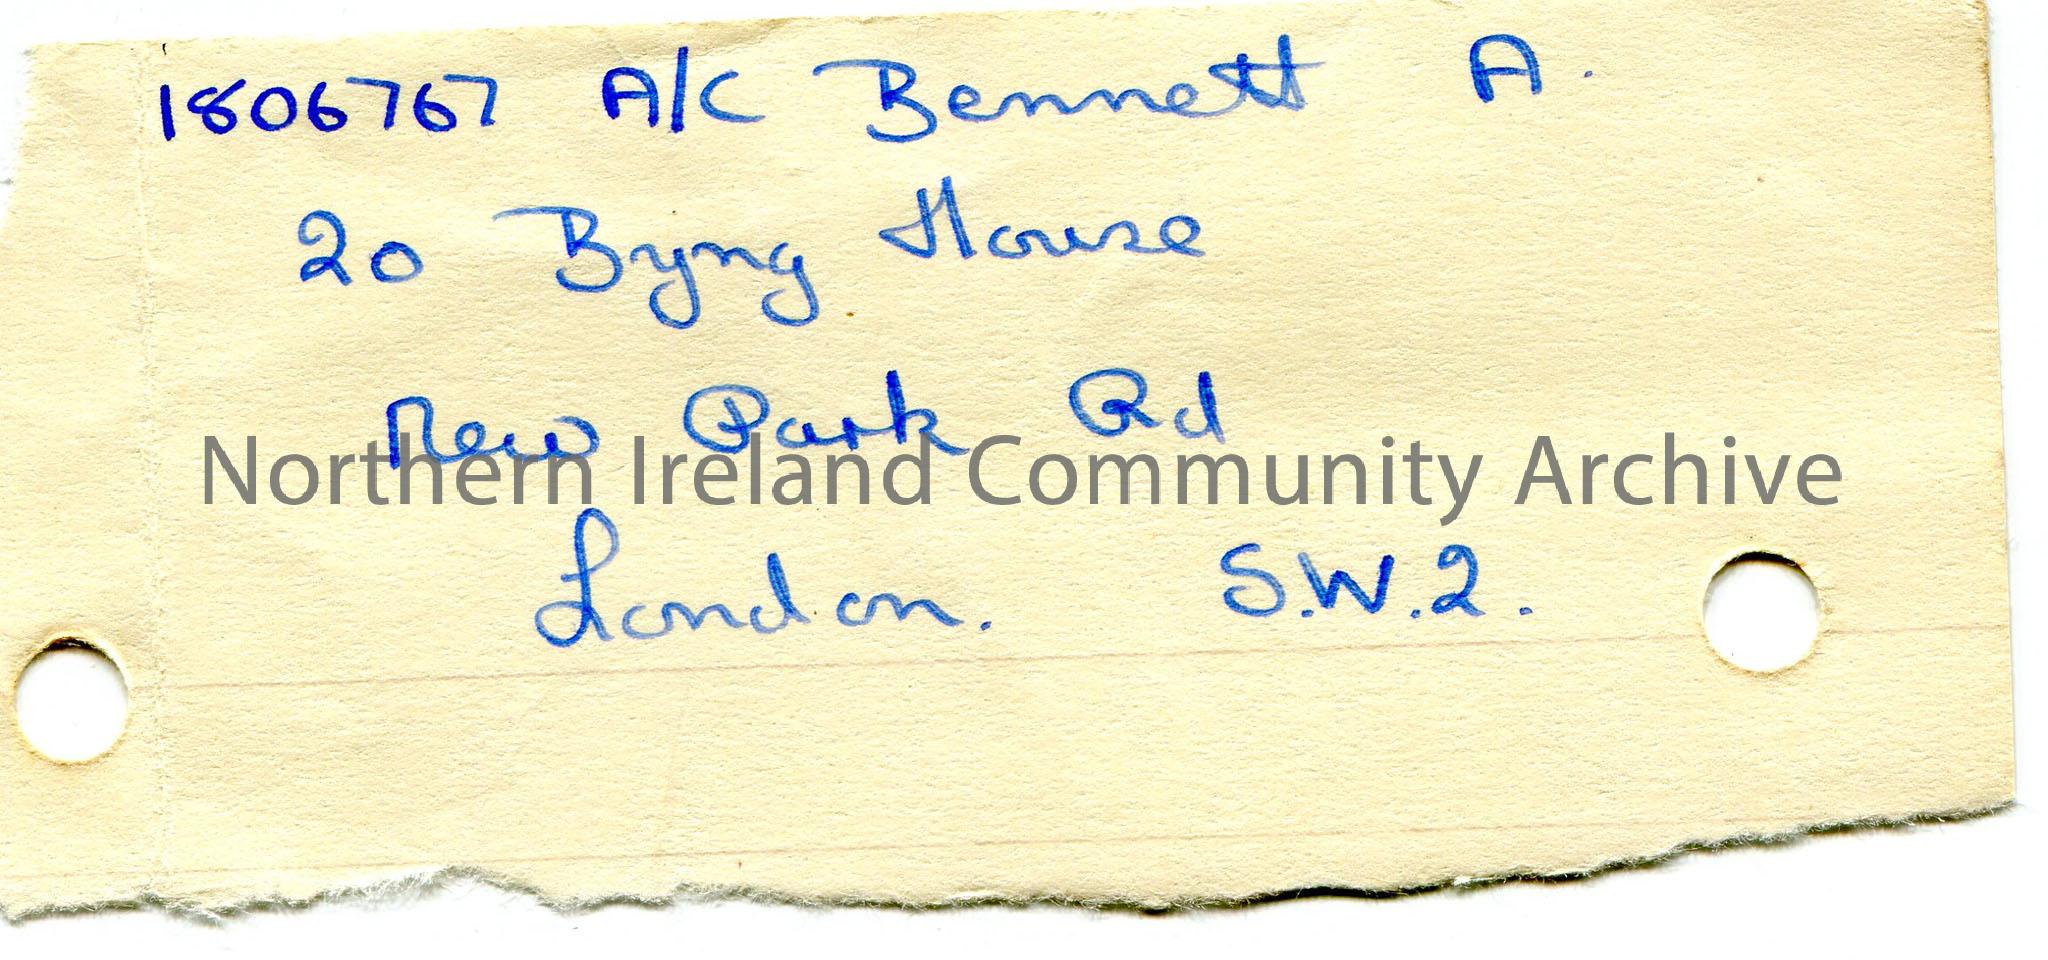 1806767 A/C Bennett A.
20 Byng House
New Park Rd
Northern Ireland Community Archive
London. S.W.2.